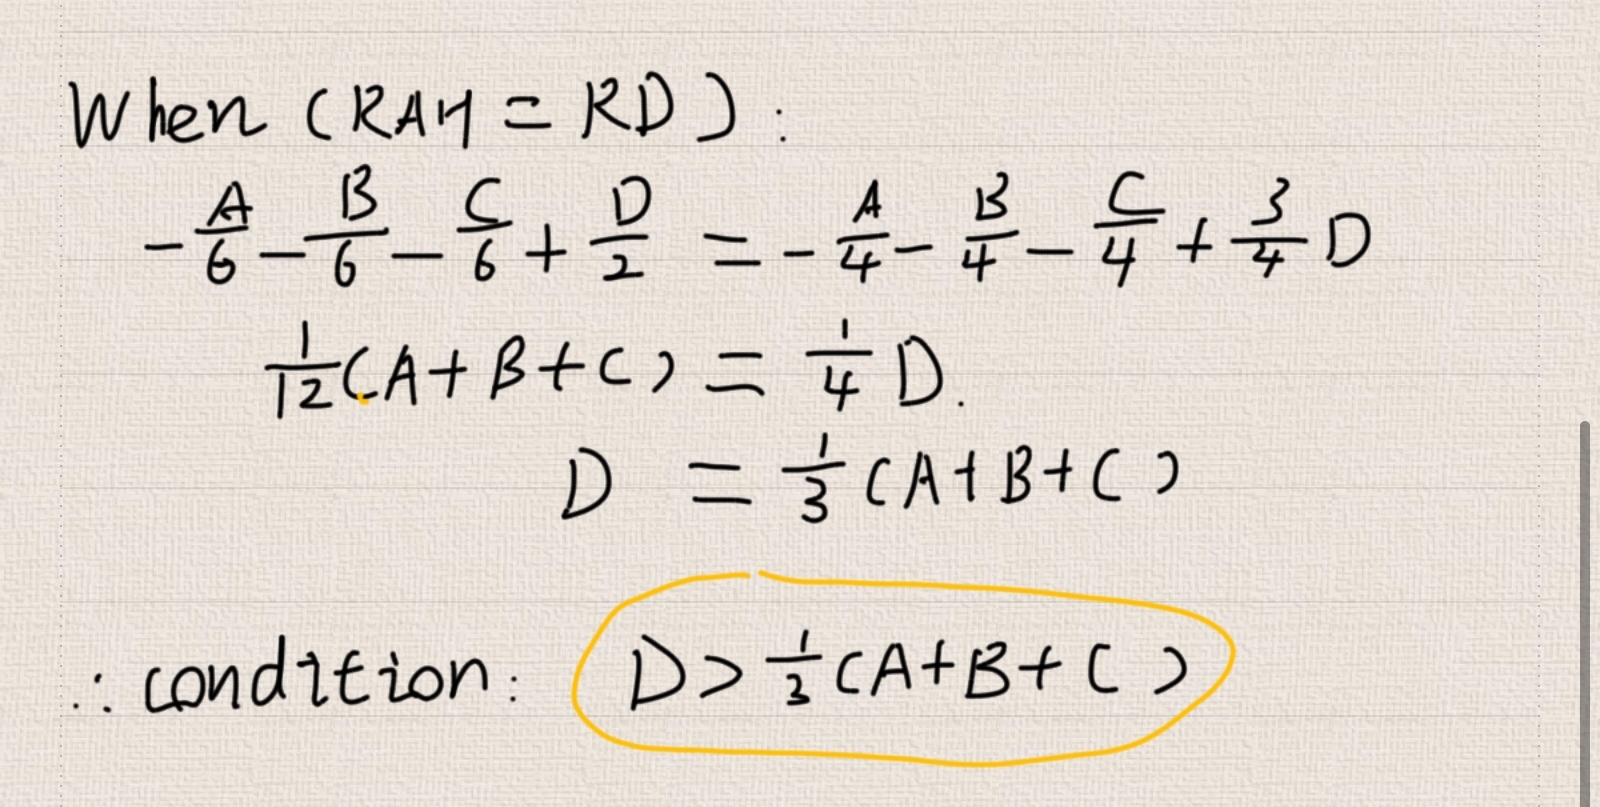 When (RAM = RD):
-A/6 - B/6 - C/6 + D/2 = -A/4 - B/4 - C/4 + 3/4 D
1/12 (A+B+C) = 1/4 D.
D = 1/3 (A+B+C)
∴ condition: D > 1/3 (A+B+C)